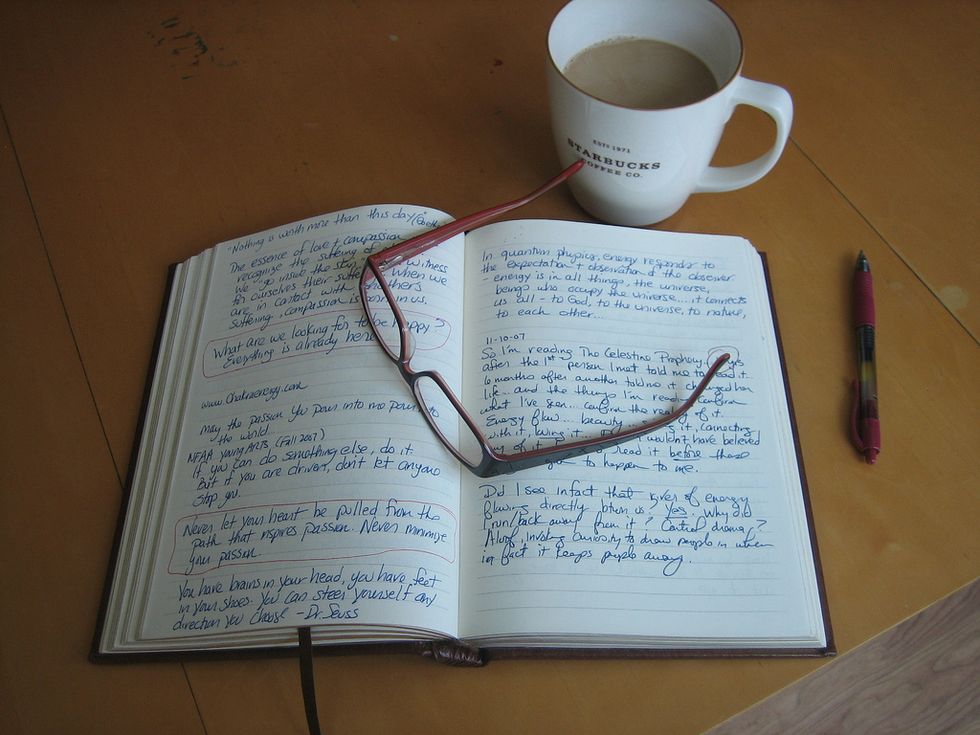 ESTD 1971
STARBUCKS
COFFEE CO.
"Nothing is worth more than this day
The essence of love + compassion
recognize the suffering of
we "go inside the skin witness
for ourselves their suffering when we
are in contact with another's
suffering, compassion is born in us.
What are we looking for to be happy?
Everything is already here
www.Chakraenergy.com
may the passion you pour into me pour
the world.
NFAA young ARTS (Fall 2007)
If you can do something else, do it.
But if you are driven, don't let anyone
stop you.
Never let your heart be pulled from the
path that inspires passion. Never minimize
your passion.
You have brains in your head, you have feet
in your shoes. You can steer yourself any
direction you choose -Dr. Seuss
In quantum physics, energy responds to
the expectation + observation of the observer
- energy is in all things, the universe,
beings who occupy the universe.... it connects
us all - to God, to the universe, to nature,
to each other...
11-10-07
So I'm reading The Celestine Prophecy.
after the 1st person I met told me to read it..
6 months after another told me it changed her
life... and the things I'm read confirm
what I've seen... confirm the reality of it.
Energy flow... beauty... it, connecting
with it, it... I wouldn't have believed
of it read it before these
to happen to me.
Did I see in fact that rivers of energy
flowing directly between us, Yes. Why did
I run/back away from it? Control drama?
Aloof, invoking curiosity to draw people in when
in fact it keeps people away.